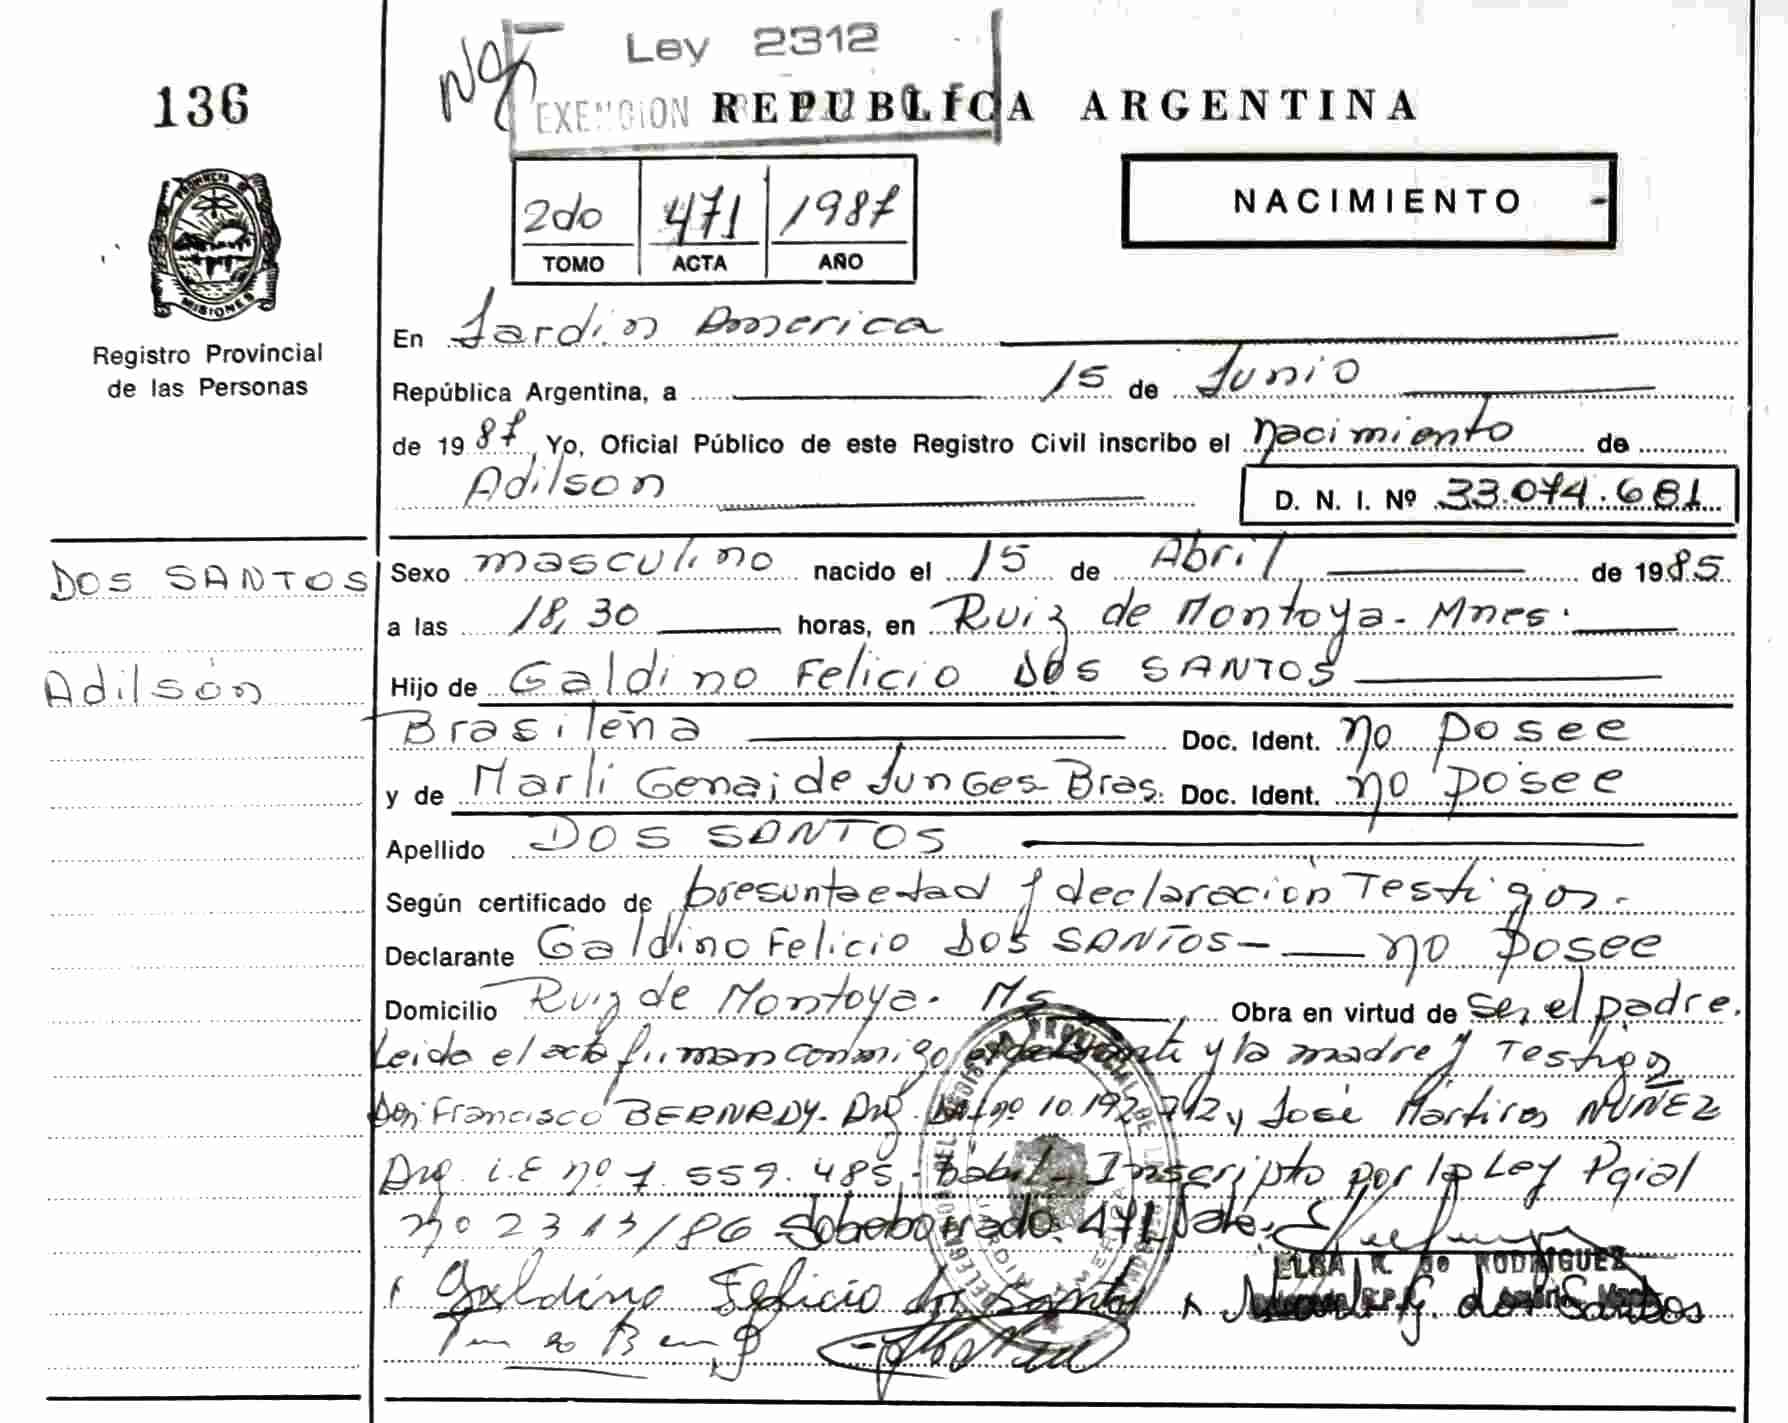 136
Ley 2312
EXENCION
REPUBLICA ARGENTINA
PROVINCIA D
MISIONES
Registro Provincial
de las Personas
2do 471 1987
TOMO ACTA AÑO
NACIMIENTO
En Jardin America
República Argentina, a 15 de Junio
de 1987 Yo, Oficial Público de este Registro Civil inscribo el nacimiento de
Adilson
D. N. I. Nº 33.074.681
DOS SANTOS
Adilsón
Sexo masculino nacido el 15 de Abril de 1985
a las 18,30 horas, en Ruiz de Montoya - Mnes.
Hijo de Galdino Felicio DOS SANTOS
Brasileña Doc. Ident. no posee
y de Marli Genaide Junges - Bras. Doc. Ident. no posee
Apellido DOS SANTOS
Según certificado de presunta edad y declaración Testigos.
Declarante Galdino Felicio DOS SANTOS - no posee
Domicilio Ruiz de Montoya. Ms Obra en virtud de ser el padre.
Leida el acta firman conmigo y la madre y Testigos
Don: Francisco BERNRDY. Arg. no 10.192.712 y José Martires NUÑEZ
Arg. L.E nº 7.559.485, - Inscripto por la Ley Pcial
nº 2313/86 Sobreborrado: 471 Vale.
ELSA R. de RODRIGUEZ
Galdino Felicio dos Santos G. dos Santos